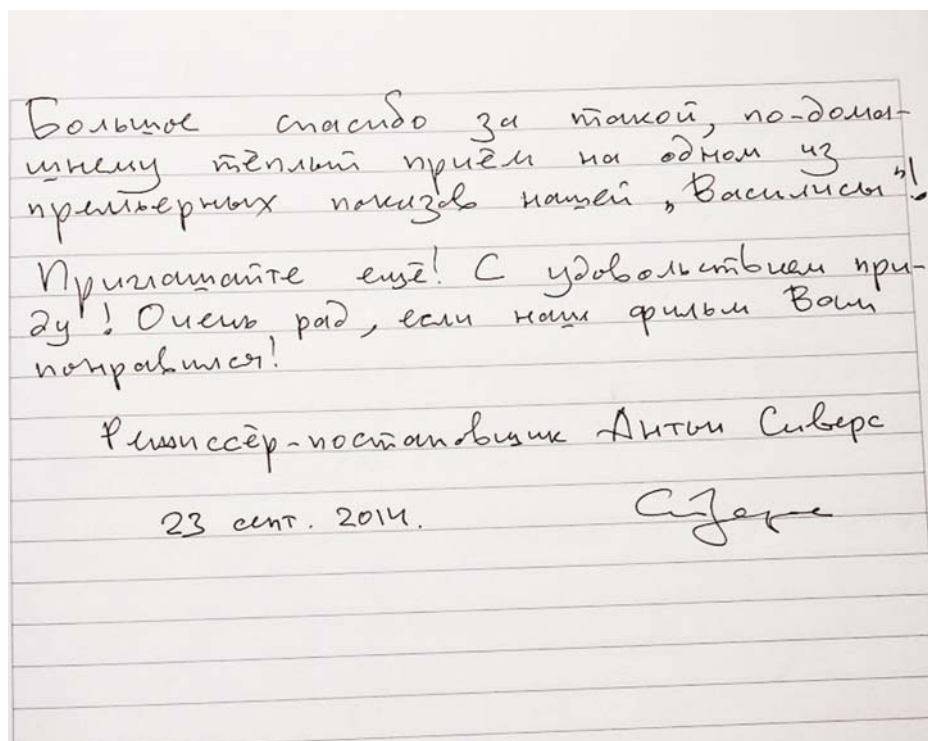 Большое спасибо за такой, по-дома-
шнему тёплый приём на одном из
премьерных показов нашей „Василисы"!
Приглашайте ещё! С удовольствием при-
ду! Очень рад, если наш фильм Вам
понравился!
Режиссёр-постановщик Антон Сиверс
23 сент. 2014.